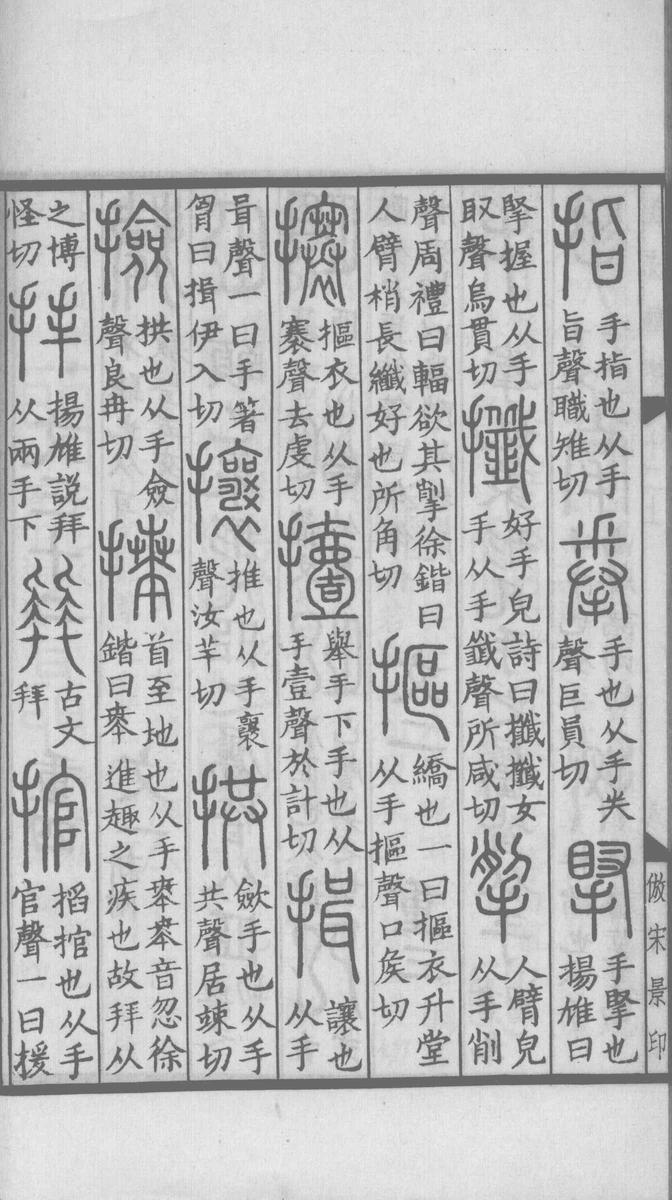 指手指也从手旨聲職雉切拳手也从手𢍏聲巨員切掔手掔也揚雄曰
掔握也从手臤聲烏貫切攕好手皃詩曰攕攕女手从手韱聲所咸切揱人臂皃从手削
聲周禮曰輻欲其揱徐鍇曰人臂梢長纖好也所角切摳繑也一曰摳衣升堂从手摳聲口矦切
攐摳衣也从手褰聲去虔切撎舉手下手也从手壹聲於計切揖讓也从手
咠聲一曰手箸胷曰揖伊入切攘推也从手襄聲汝羊切拱斂手也从手共聲居竦切
撿拱也从手僉聲良冉切𢷎首至地也从手𠦪𠦪音忽徐鍇曰𠦪進趣之疾也故拜从
之博怪切拜揚雄說拜从兩手下𢫶古文拜捾搯捾也从手官聲一曰援
倣宋景印